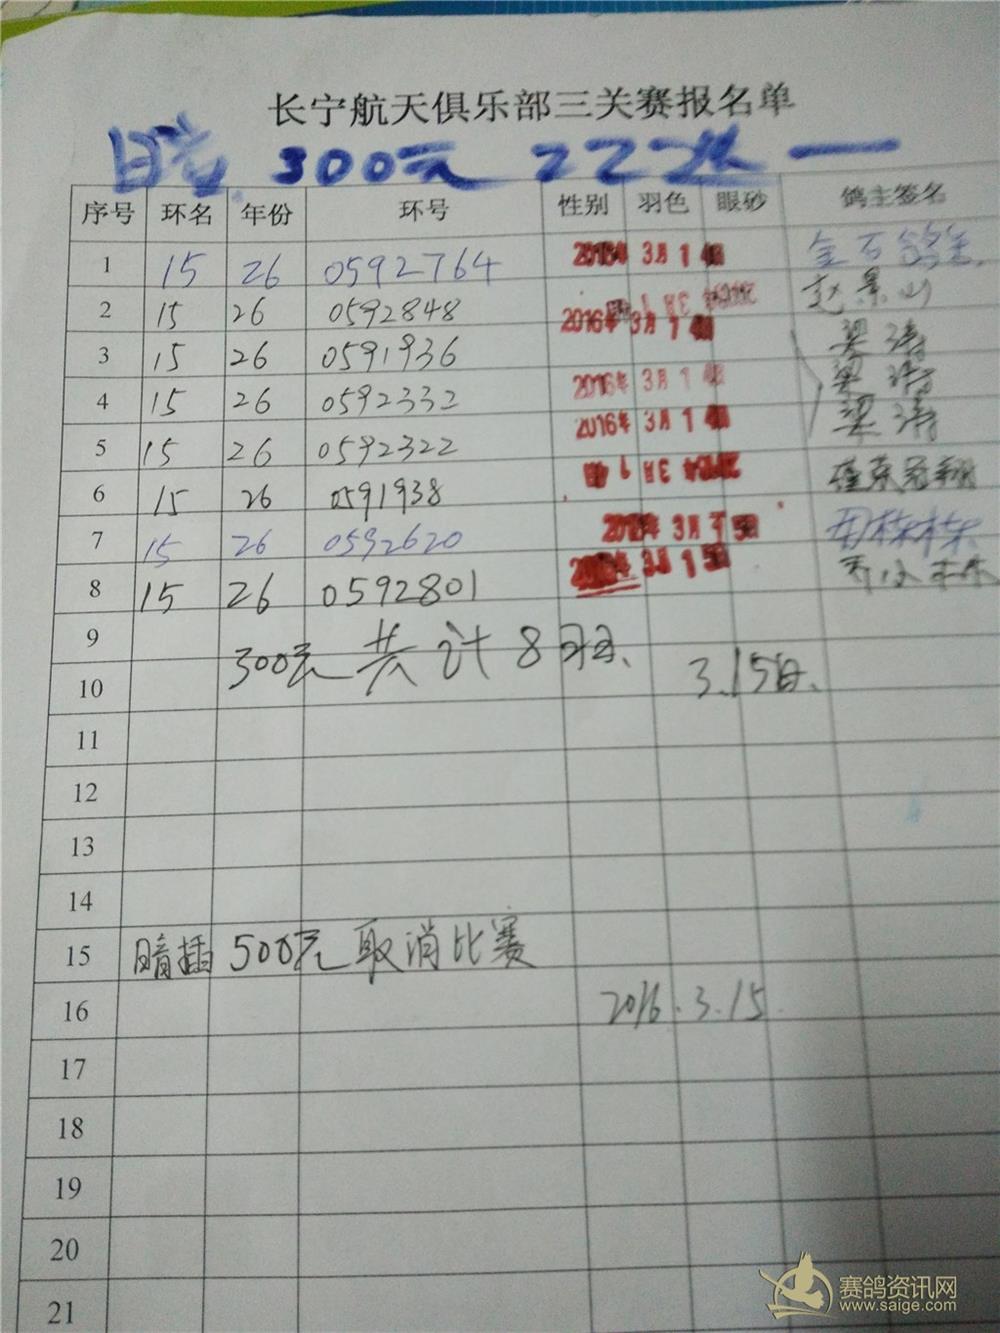 长宁航天俱乐部三关赛报名单
300元 22
序号 环名 年份 环号 性别 羽色 眼砂 鸽主签名
1 15 26 0592764 2016年 3月 1 4日 金石鸽舍
2 15 26 0592848 赵景山
3 15 26 0591936 2016年 3月 1 4日 梁涛
4 15 26 0592332 2016年 3月 1 4日 梁涛
5 15 26 0592322 2016年 3月 1 4日 梁涛
6 15 26 0591938 3月 1 4日
7 15 26 0592620 3月 1 5日
8 15 26 0592801 3月 1 5日
9
300元 共计8羽、 3.15日、
10
11
12
13
14
15 暗插 500元 取消比赛
16 2016.3.15
17
18
19
20
21
赛鸽资讯网
www.saige.com